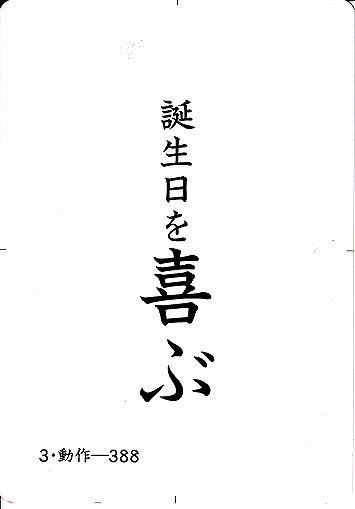 誕生日を喜ぶ
3・動作―388